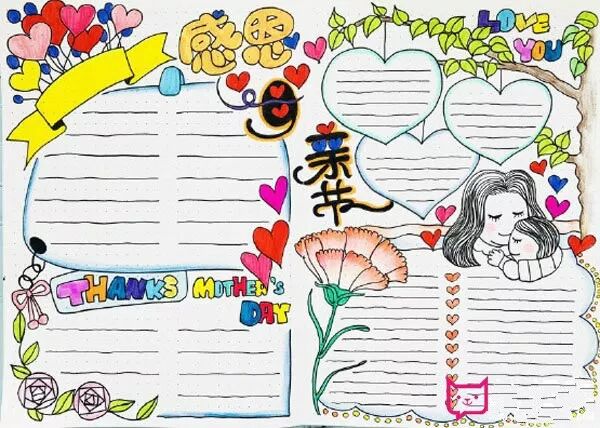 感恩
母
亲节
LOVE
YOU
THANKS MOTHER'S
DAY